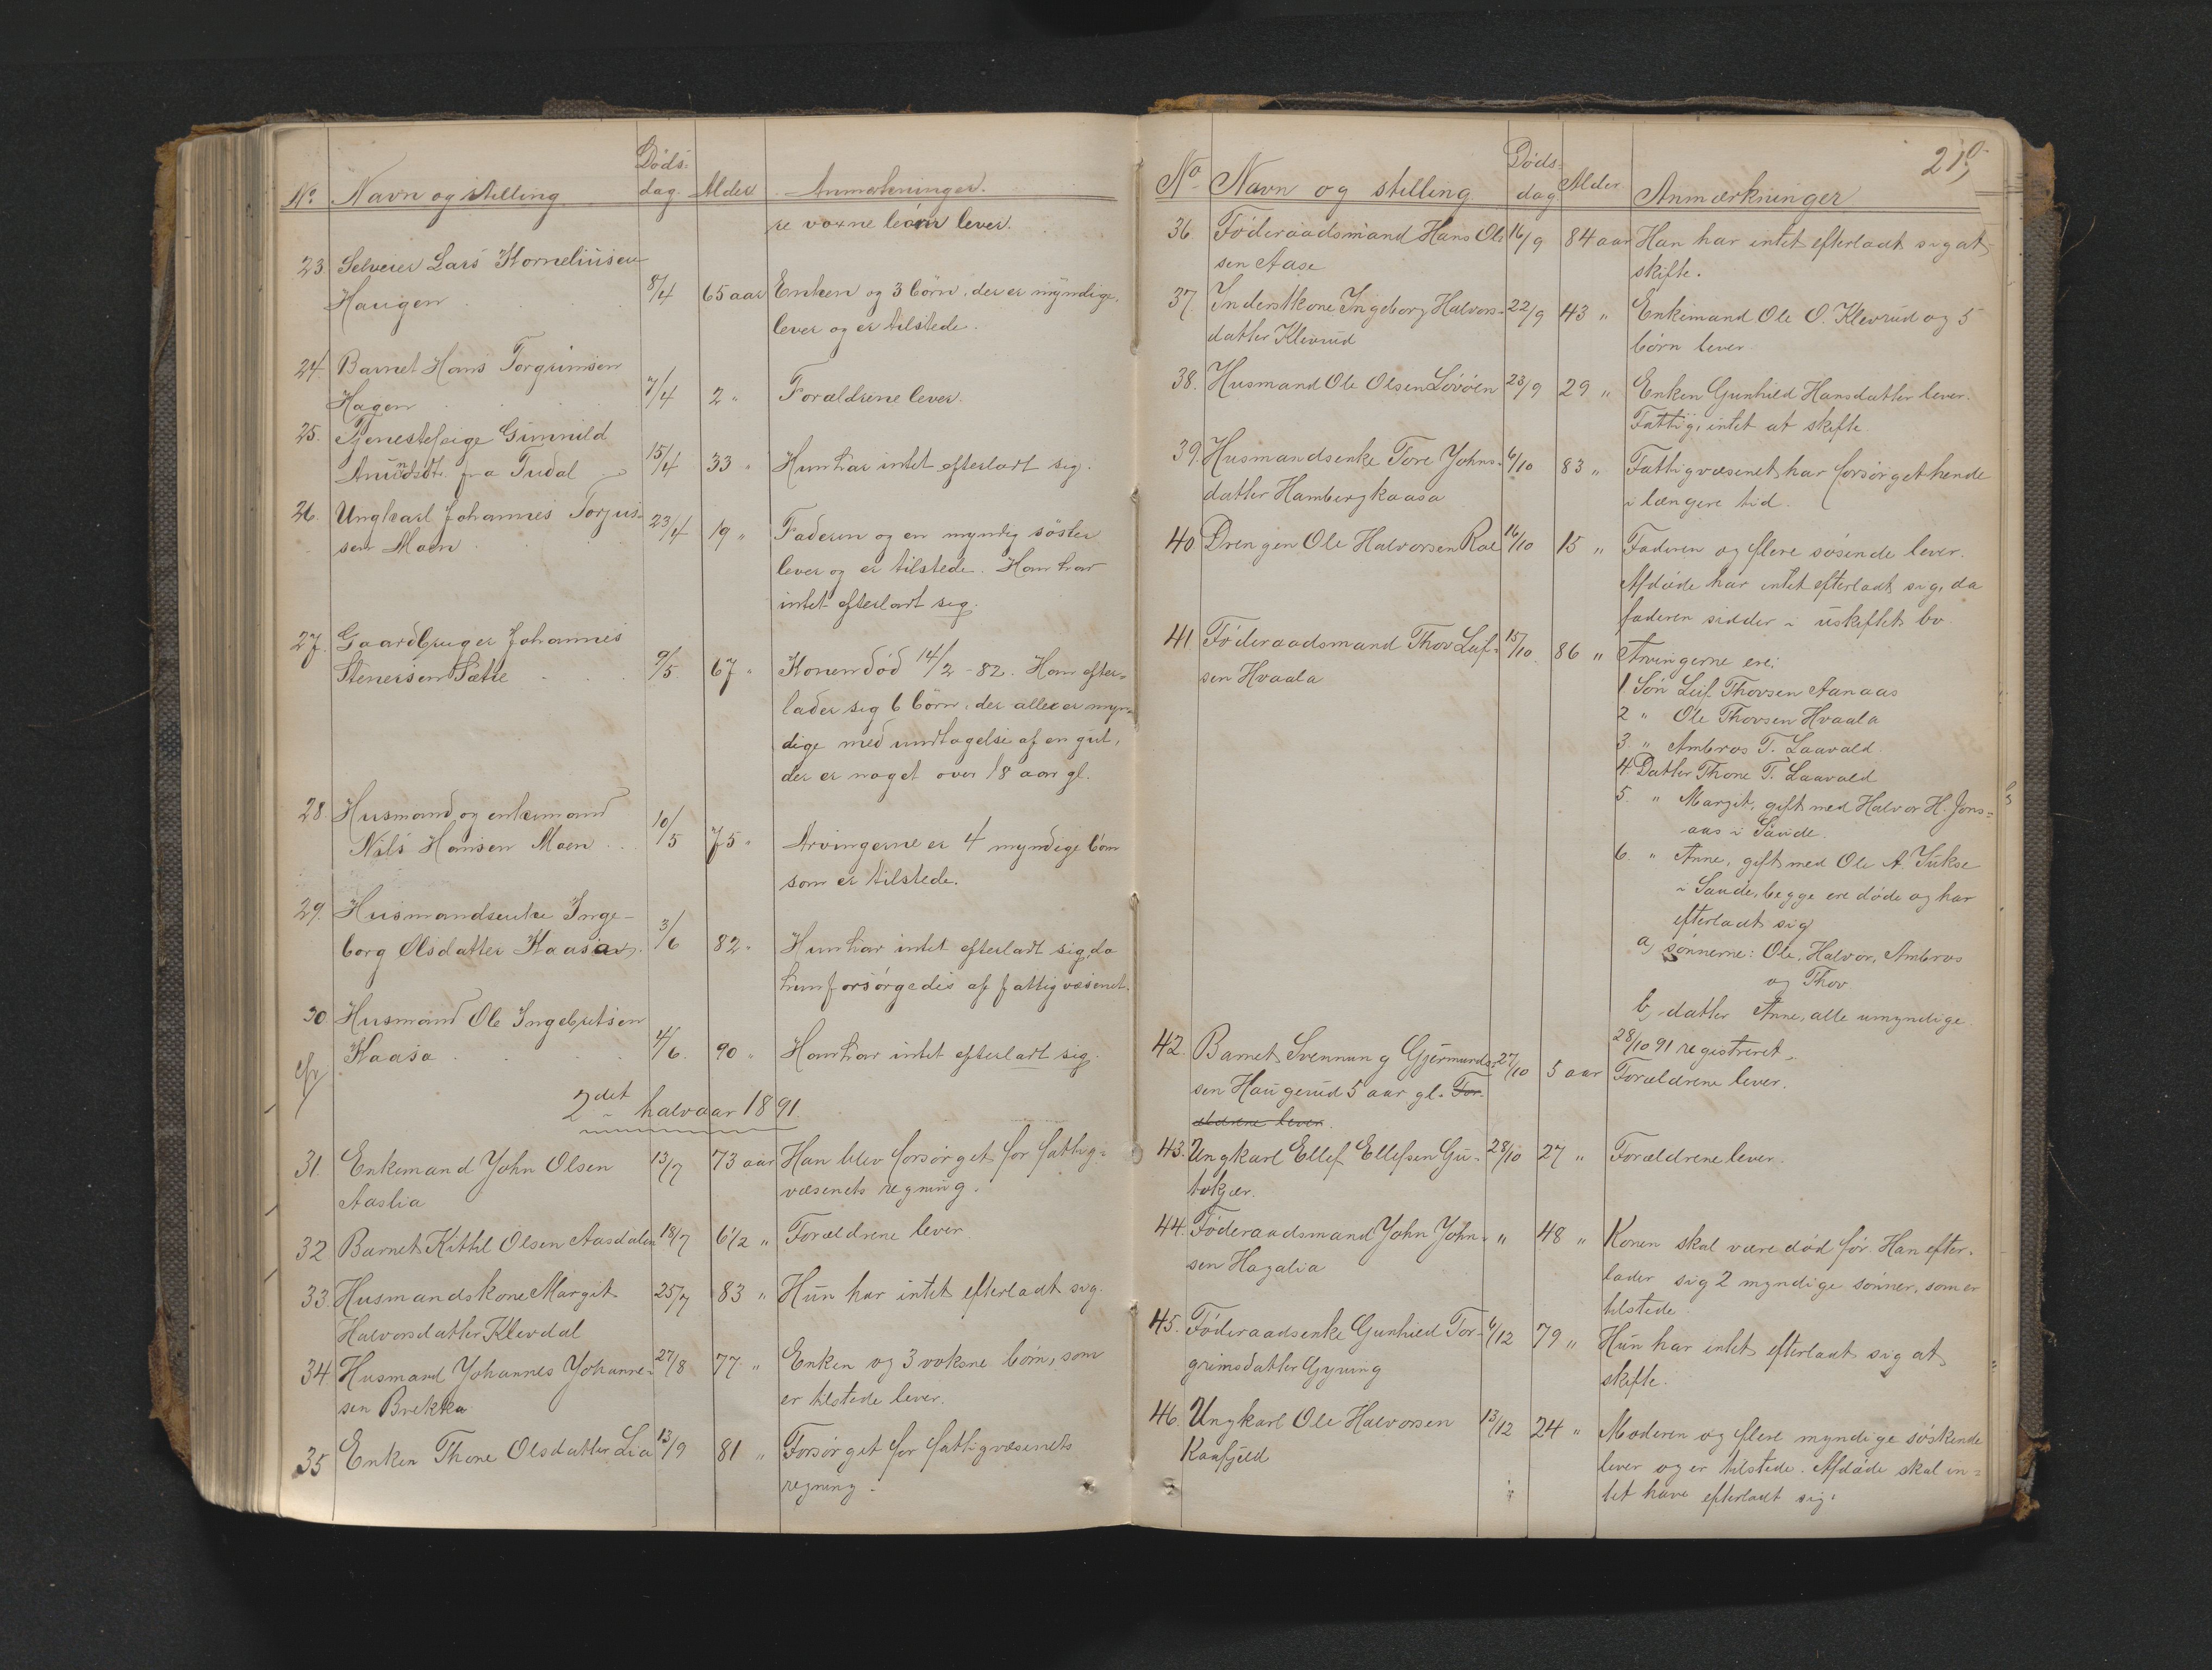 No Navn og Stilling Dødsdag. Alder Anmerkninger.
re voxne børn lever.
23. Selveier Lars Korneliusen
Haugen 8/4 65 aar Enken og 3 börn, der er myndige,
lever og er tilstede.
24. Barnet Hans Torgrimsen
Hagen 7/4 2 " Forældrene lever.
25. Tjenestepige Gunnild
Anundsdt. fra Tudal 15/4 33 " Hun har intet efterladt sig.
26. Ungkarl Johannes Torjus-
sen Moen 23/4 19 " Faderen og en myndig söster
lever og er tilstede. Han har
intet efterladt sig.
27. Gaardbruger Johannes
Stenersen Sætre 9/5. 67 " Konen död 14/2 - 82. Han efter-
lader sig 6 börn, der alle er myn-
dige med undtagelse af en gut,
der er noget over 18 aar gl.
28. Husmand og enkemand
Nils Hansen Moen 10/5 75 " Arvingerne er 4 myndige börn
som er tilstede.
29. Husmandsenke Inge-
borg Olsdatter Kaasa 3/6 82 " Hun har intet efterladt sig, da
hun forsörgedes af fattigvæsenet.
30. Husmand Ole Ingebretsen
Kaasa 4/6. 90 " Han har intet efterladt sig.
2det halvaar 1891.
31. Enkemand John Olsen 13/7 73 aar Han blev forsørget for fattig-
Aaslia væsenets regning.
32 Barnet Kittil Olsen Aasdalen 18/7 6 1/2 " Forældrene lever
33. Husmandskone Margit 25/7 83 " Hun har intet efterladt sig.
Halvorsdatter Klevdal
34. Husmand Johannes Johanne- 27/8 77 " Enken og 3 voksne börn, som
sen Brekka er tilstede lever.
35 Enken Thone Olsdatter Lia 13/9 81 " Forsørget for fattigvæsenets
regning.
219
No Navn og stilling Dødsdag Alder. Anmærkninger
36. Föderaadsmand Hans Ol- 16/9 84 aar Han har intet efterladt sig at
sen Aase skifte.
37. Inderstkone Ingeborg Halvors- 22/9 43 " Enkemand Ole O. Klevrud og 5
datter Klevrud börn lever.
38. Husmand Ole Olsen 23/9 29 " Enken Gunhild Hansdatter lever.
Fattig, intet at skifte.
39. Husmandsenke Tore Johns- 6/10 83 " Fattigvæsenet har forsörget hende
datter Hambergkaasa i længere tid.
40 Drengen Ole Halvorsen Roe 16/10 15 " Faderen og flere sösende lever.
Afdöde har intet efterladt sig, da
faderen sidder i uskiftet bo.
41. Föderaadsmand Thov Leif- 15/10 86 " Arvingerne ere:
sen Hvaala
1. Sön Leif Thovsen Aanaas
2 " Ole Thovsen Hvaala
3. " Ambros T. Laavald.
4. Datter Thone T. Laavald
5. " Margit, gift med Halvor H. Jons-
aas i Saude.
6. " Anne, gift med Ole A. Jukse
i Saude, begge ere döde og har
efterladt sig
a, sönnerne: Ole, Halvor, Ambros
og Thov.
b, datter Anne, alle umyndige.
28/10 91 registreret.
42. Barnet Svennung Gjermund- 27/10 5 aar Forældrene lever.
sen Haugerud 5 aar gl. For-
ældrene lever.
43. Ungkarl Ellef Ellefsen Gu- 28/10 27 " Forældrene lever.
tokjær.
44. Föderaadsmand John John- " 48 " Konen skal være död för. Han efter-
sen Hagalia lader sig 2 myndige sönner, som er
tilstede.
45. Föderaadsenke Gunhild Tor- 6/12 79 " Hun har intet efterladt sig at
grimsdatter Gyrung skifte.
46. Ungkarl Ole Halvorsen 13/12 24 " Moderen og flere myndige söskende
Kaafjeld lever og er tilstede. Afdöde skal in-
tet have efterladt sig.